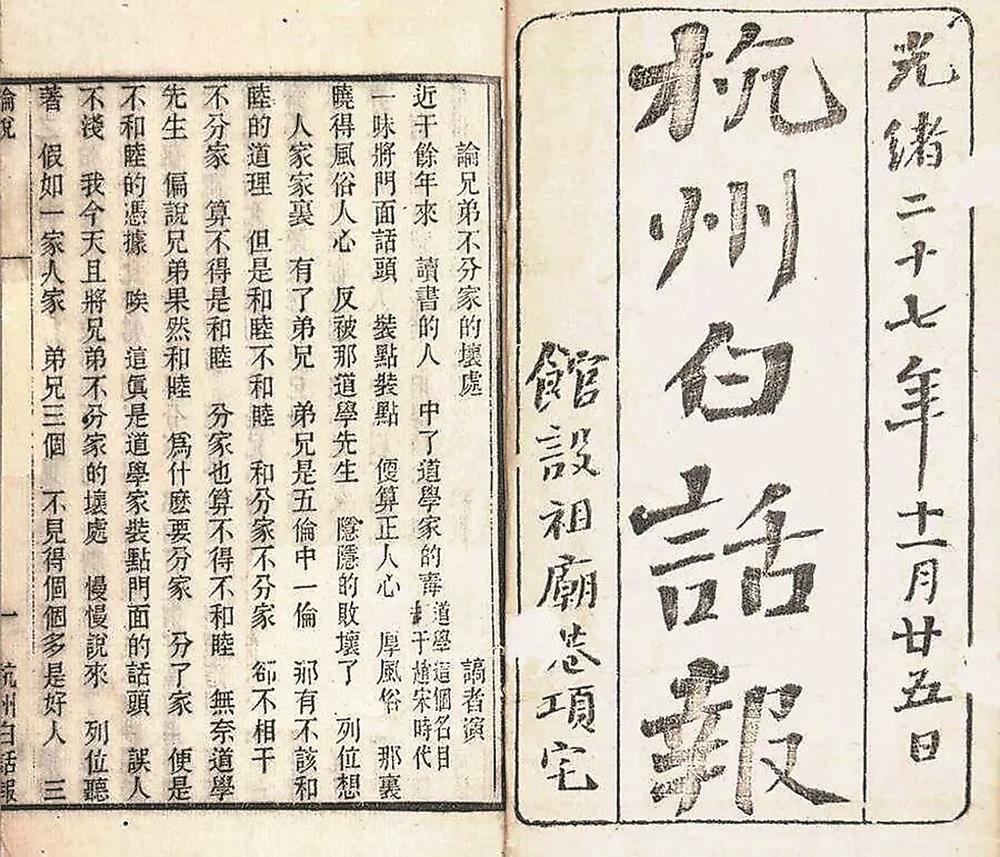 光緒二十七年十一月廿五日
杭州白話報
館設祖廟巷項宅
論兄弟不分家的壞處 謞者演
近千餘年來 讀書的人 中了道學家的毒 道學這個名目 于趙宋時代
一味將門面話頭 裝點裝點 便算正人心 厚風俗 那裏
曉得風俗人心 反被那道學先生 隱隱的敗壞了 列位想
人家家裏 有了弟兄 弟兄是五倫中一倫 那有不該和
睦的道理 但是和睦不和睦 和分家不分家 都不相干
不分家 算不得是和睦 分家也算不得不和睦 無奈道學
先生 偏說兄弟果然和睦 爲什麽要分家 分了家 便是
不和睦的憑據 唉 這眞是道學家裝點門面的話頭 誤人
不淺 我今天且將兄弟不分家的壞處 慢慢說來 列位聽
著 假如一家人家 弟兄三個 不見得個個多是好人 三
論說 一 杭州白話報